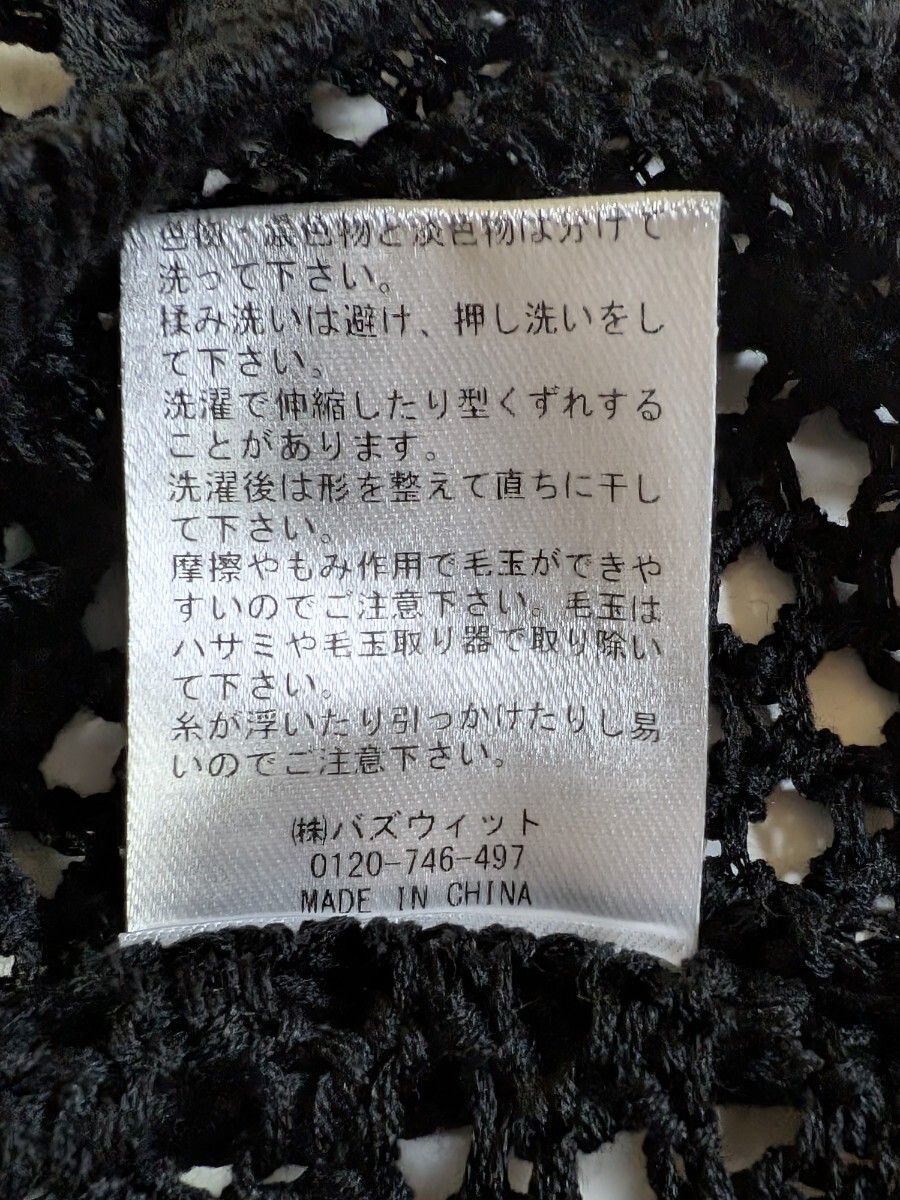 色物・濃色物と淡色物は分けて
洗って下さい。
揉み洗いは避け、押し洗いをし
て下さい。
洗濯で伸縮したり型くずれする
ことがあります。
洗濯後は形を整えて直ちに干し
て下さい。
摩擦やもみ作用で毛玉ができや
すいのでご注意下さい。毛玉は
ハサミや毛玉取り器で取り除い
て下さい。
糸が浮いたり引っかけたりし易
いのでご注意下さい。
㈱バズウィット
0120-746-497
MADE IN CHINA